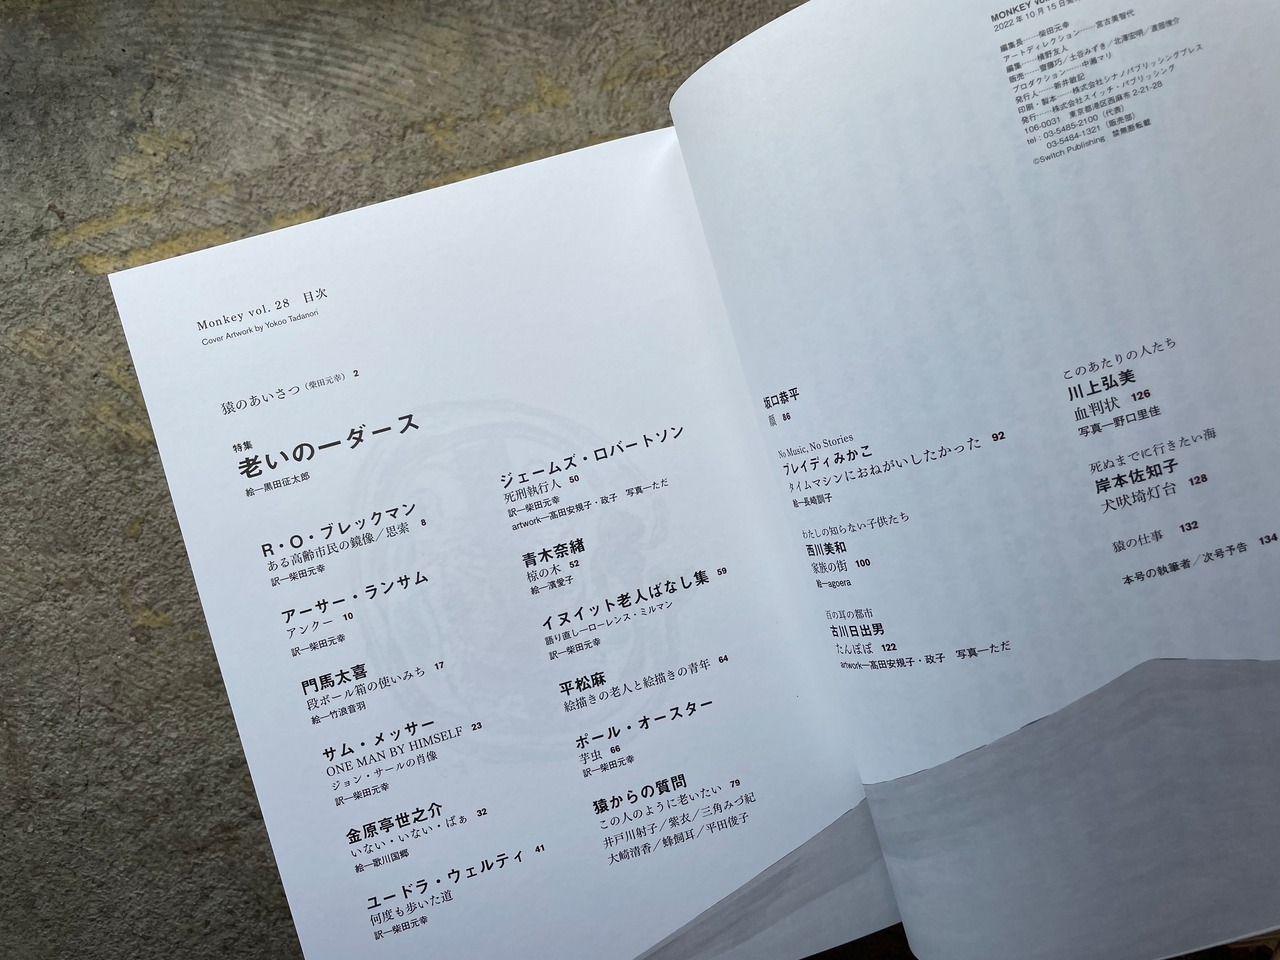 Monkey vol. 28 目次
Cover Artwork by Yokoo Tadanori
猿のあいさつ（柴田元幸） 2
特集
老いの一ダース
絵―黒田征太郎
R・O・ブレックマン
ある高齢市民の鏡像／思索 8
訳―柴田元幸
アーサー・ランサム
アンクー 10
訳―柴田元幸
門馬太喜
段ボール箱の使いみち 17
絵―竹浪音羽
サム・メッサー
ONE MAN BY HIMSELF 23
ジョン・サールの肖像
訳―柴田元幸
金原亭世之介
いない・いない・ばぁ 32
絵―歌川国郷
ユードラ・ウェルティ 41
何度も歩いた道
訳―柴田元幸
ジェームズ・ロバートソン
死刑執行人 50
訳―柴田元幸
artwork―髙田安規子・政子 写真―ただ
青木奈緒
椋の木 52
絵―濱愛子
イヌイット老人ばなし集 59
語り直し―ローレンス・ミルマン
訳―柴田元幸
平松麻
絵描きの老人と絵描きの青年 64
ポール・オースター
芋虫 66
訳―柴田元幸
猿からの質問
この人のように老いたい 79
井戸川射子／紫衣／三角みづ紀
大崎清香／蜂飼耳／平田俊子
坂口恭平
顔 86
No Music, No Stories
ブレイディみかこ
タイムマシンにおねがいしたかった 92
絵―長崎訓子
わたしの知らない子供たち
西川美和
家族の街 100
絵―agoera
百の耳の都市
古川日出男
たんぽぽ 122
artwork―髙田安規子・政子 写真―ただ
このあたりの人たち
川上弘美
血判状 126
写真―野口里佳
死ぬまでに行きたい海
岸本佐知子
犬吠埼灯台 128
猿の仕事 132
本号の執筆者／次号予告 134
MONKEY vol.
2022年10月15日
編集長……柴田元幸
アートディレクション……宮古美智代
編集……横野友人
販売……齋藤巧／土谷みずき／北澤宏明／渡部俊介
プロダクション……中瀬マリ
発行人……新井敏記
印刷・製本……株式会社シナノパブリッシングプレス
発行……株式会社スイッチ・パブリッシング
106-0031 東京都港区西麻布 2-21-28
tel：03-5485-2100（代表）
03-5484-1321（販売部）
©Switch Publishing 禁無断転載